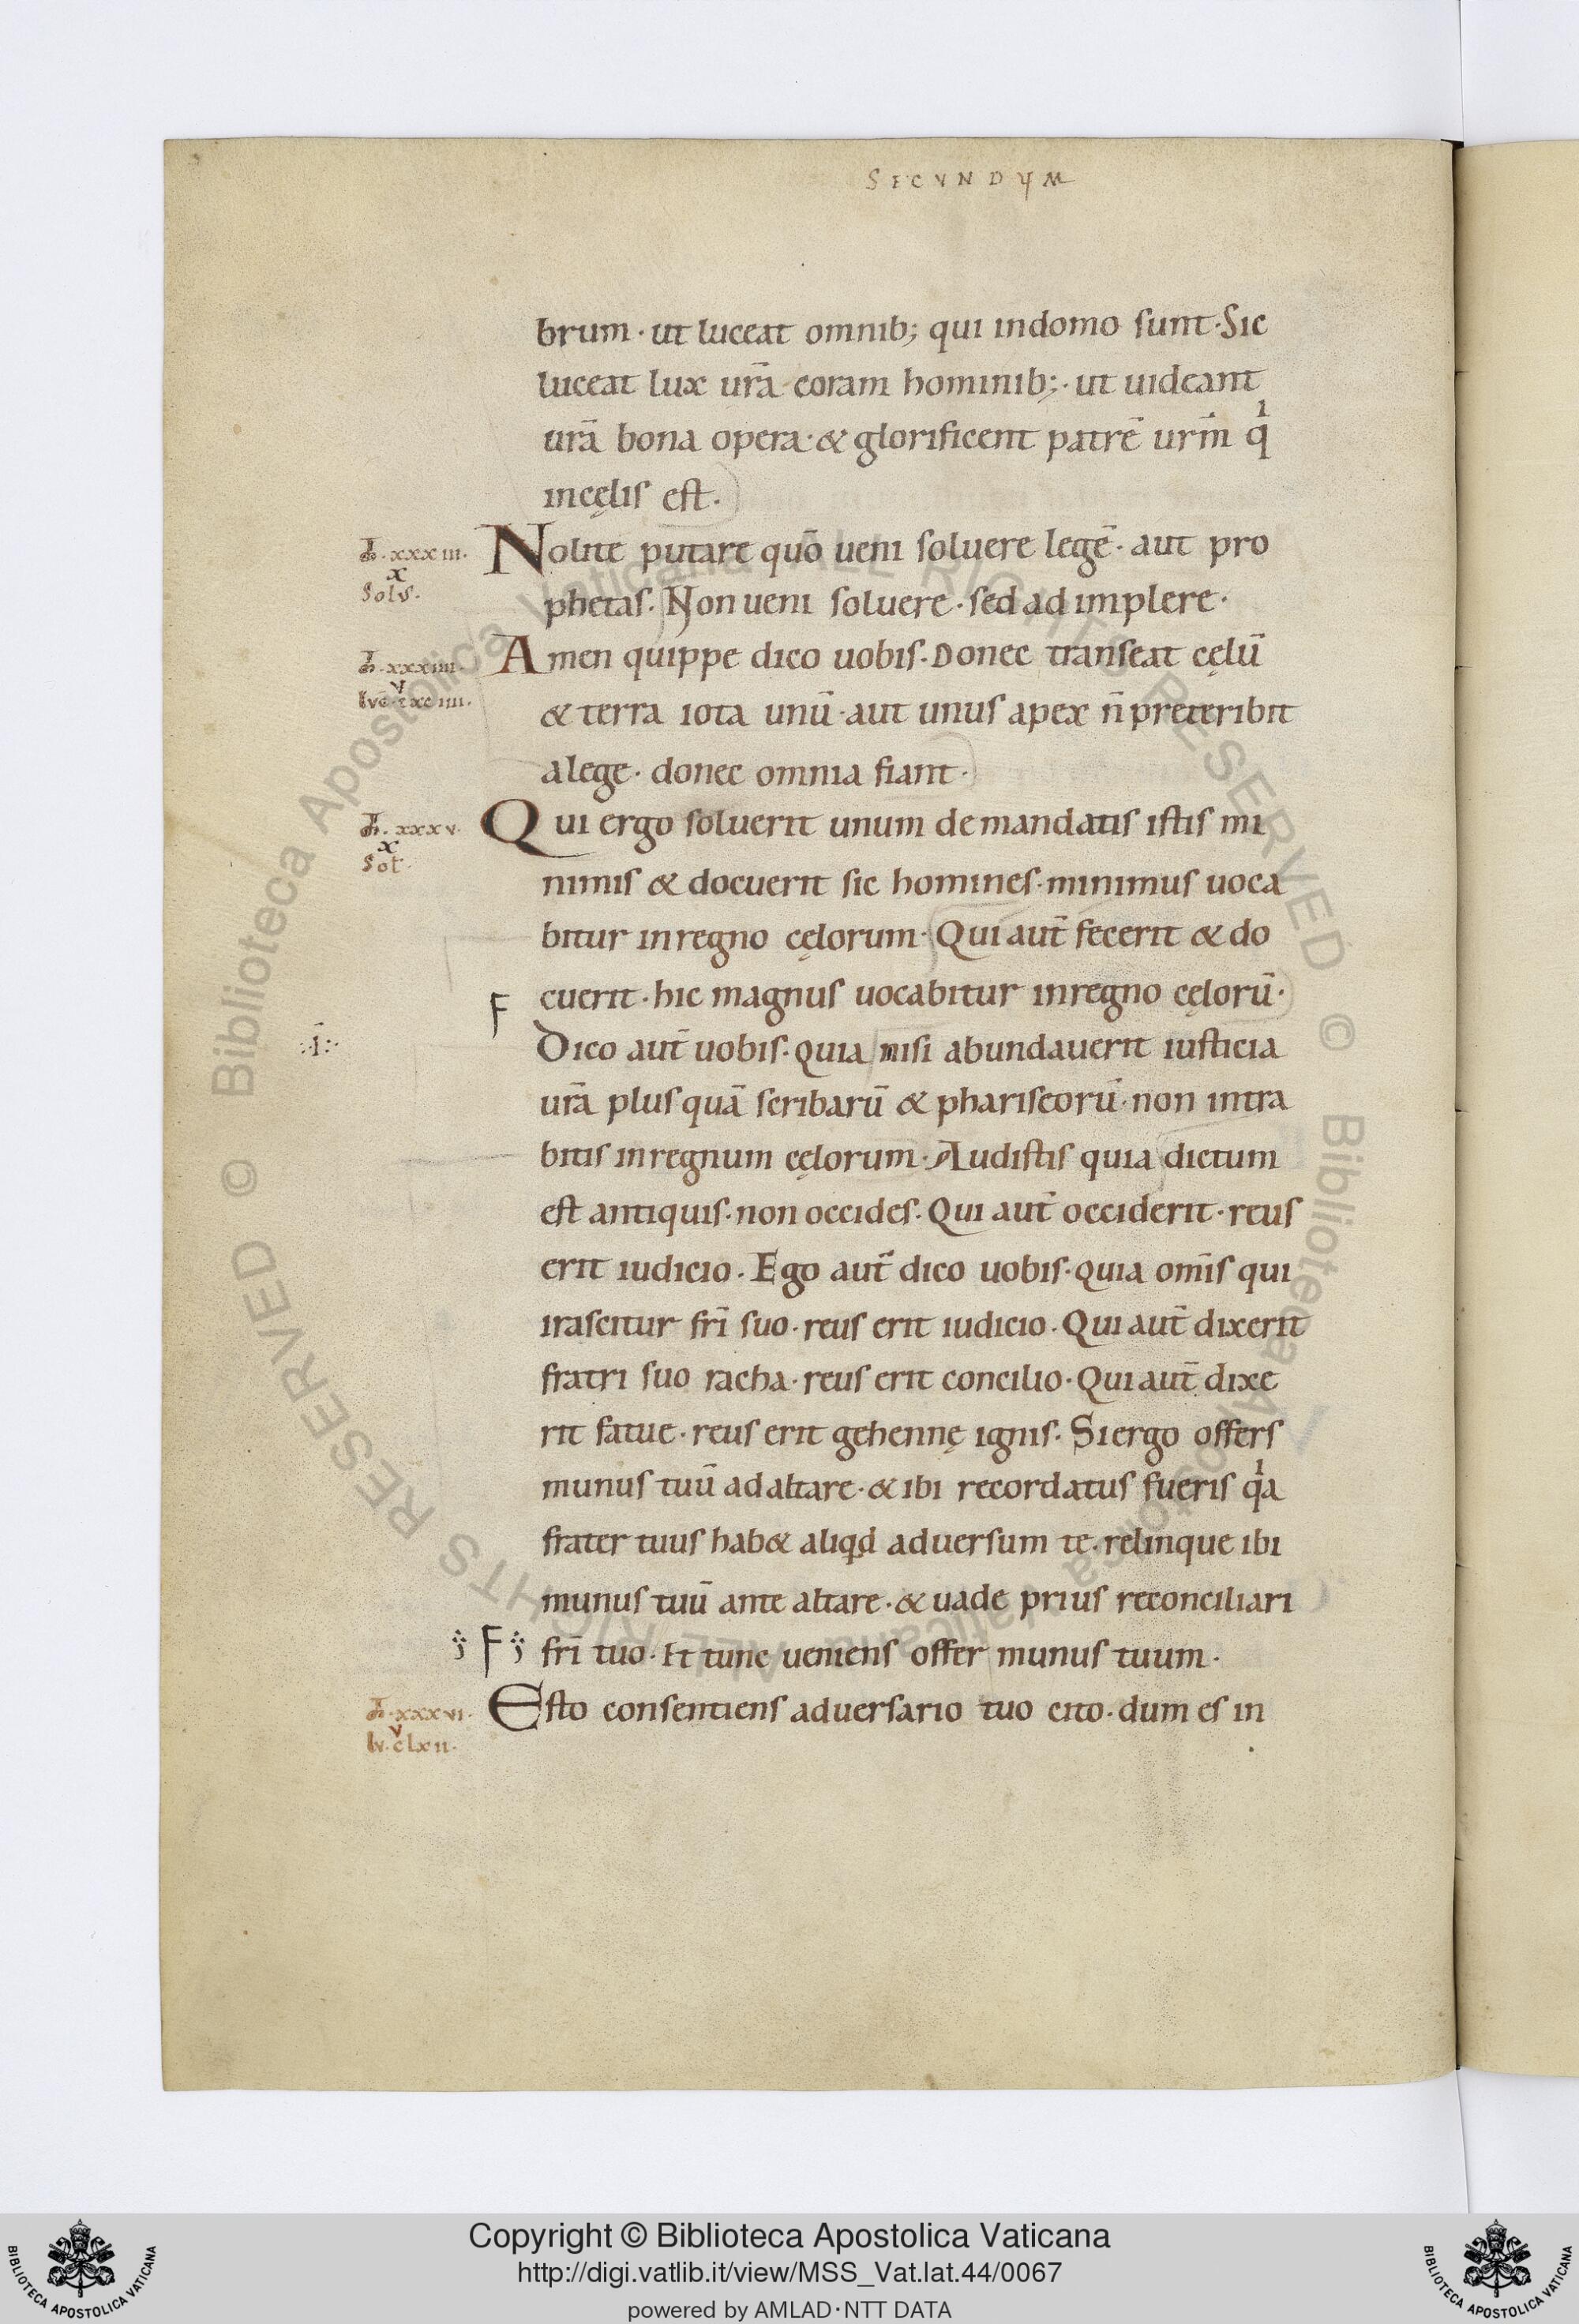 SECVNDVM
brum · ut luceat omnib; qui indomo sunt · Sic
luceat lux urā coram hominib; · ut uideant
urā bona opera · & glorificent patrē urm̄ qi
incęlis est ·
.xxxiii.
x
Solv.
Nolite putare quō ueni soluere legē · aut pro
phetas · Non ueni soluere · sed ad implere ·
.xxxiiii.
v
lvc cxciiii.
Amen quippe dico uobis · Donec transeat cęlū
& terra iota unū · aut unus apex n̄ preteribit
alege · donec omnia fiant ·
.xxxv.
x
Sol
Qui ergo soluerit unum demandatis istis mi
nimis & docuerit sic homines · minimus uoca
bitur inregno cęlorum · Qui aut̄ fecerit & do
F
cuerit · hic magnus uocabitur inregno cęlorū ·
Dico aut̄ uobis · quia nisi abundauerit iusticia
urā plusquā scribarū & phariseorū · non intra
bitis inregnum cęlorum · Audistis quia dictum
est antiquis · non occides · Qui aut̄ occiderit · reus
erit iudicio · Ego aut̄ dico uobis · quia om̄is qui
irascitur frī suo · reus erit iudicio · Qui aut̄ dixerit
fratri suo racha · reus erit concilio · Qui aut̄ dixe
rit fatue · reus erit gehennę ignis · Si ergo offers
munus tuū ad altare · & ibi recordatus fueris qia
frater tuus hab& aliqd aduersum te · relinque ibi
munus tuū ante altare · & uade prius reconciliari
F
frī tuo · Et tunc ueniens offer munus tuum ·
.xxxvi.
v
lv. clxii.
Esto consentiens aduersario tuo cito · dum es in
© Biblioteca Apostolica Vaticana ALL RIGHTS RESERVED
© Biblioteca Apostolica Vaticana ALL RIGHTS RESERVED
BIBLIOTECA APOSTOLICA VATICANA
Copyright © Biblioteca Apostolica Vaticana
http://digi.vatlib.it/view/MSS_Vat.lat.44/0067
powered by AMLAD·NTT DATA
BIBLIOTECA APOSTOLICA VATICANA